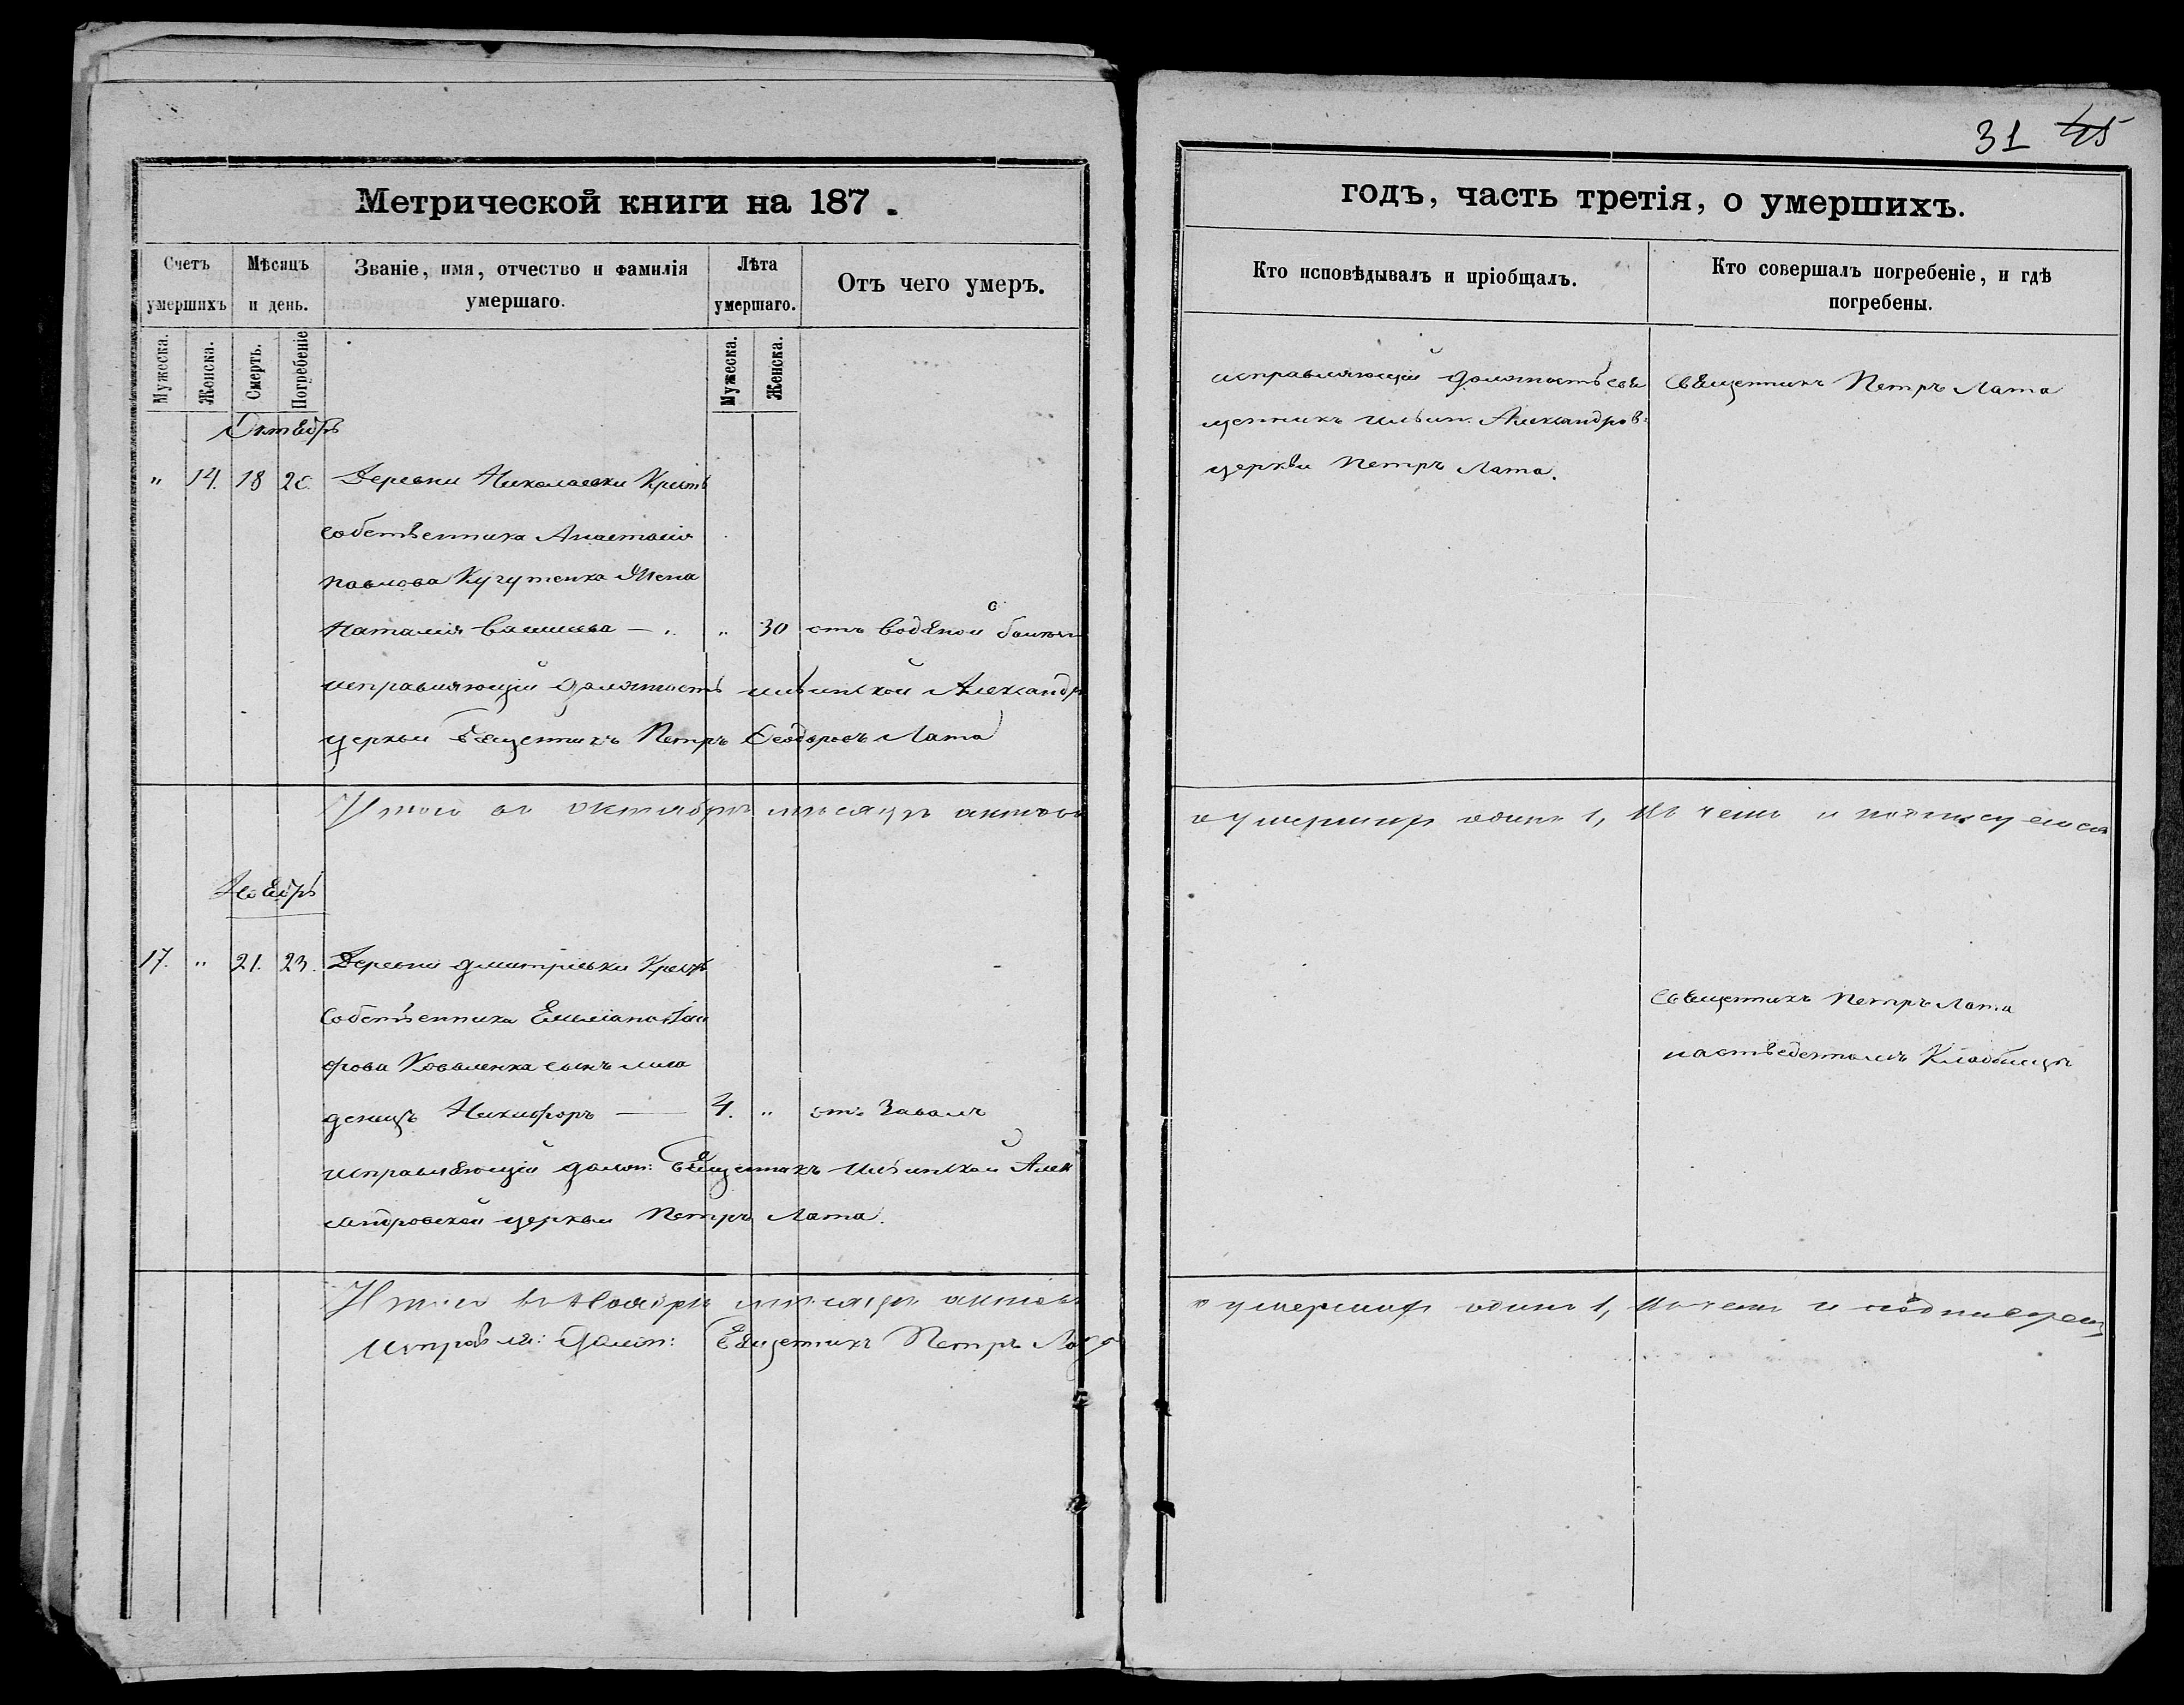 31 45
Метрической книги на 187 .
Счетъ умершихъ
Мѣсяцъ и день.
Званіе, имя, отчество и фамилія умершаго.
Лѣта умершаго.
Отъ чего умеръ.
Мужеска.
Женска.
Смерть.
Погребеніе
Мужеска.
Женска.
Октябрь
" 14. 18 20. Деревни Николаевки Крест
собственника Анастасія
Павлова Кугутенка Жена
Наталія — " " 30 отъ водяной
исправляющій должность Ильинской Александр
церкви Священникъ Петръ Ѳеодоровъ Лата
Итого въ октябрѣ мѣсяцѣ актовъ
Ноябрь
17. " 21. 23. Деревни Дмитріевки Крест
собственника Емиліана
Коваленка сынъ мла
денецъ Никифоръ — 4. " отъ Завалъ
исправляющій долж: Священникъ Ильинской Алек
сандровской церкви Петръ Лата.
Итого въ Ноябрѣ мѣсяцѣ актовъ
исправля: долж: Священникъ Петръ Лата
годъ, часть третія, о умершихъ.
Кто исповѣдывалъ и пріобщалъ.
Кто совершалъ погребеніе, и гдѣ погребены.
исправляющій должность свя
щенникъ Ильин. Александров:
церкви Петръ Лата.
Священникъ Петръ Лата
о умершихъ одинъ 1, въ чемъ и подписуемся
Священникъ Петръ Лата
Кладбищѣ
о умершихъ одинъ 1, въ чемъ и